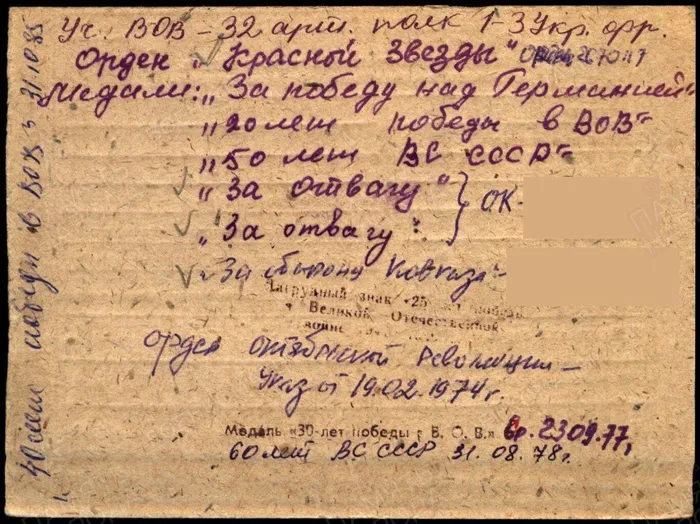 Уч. ВОВ - 32 арт. полк 1-3 Укр. фр.
Орден „Красной Звезды"
Медали: „За победу над Германией"
„20 лет победы в ВОВ"
„50 лет ВС СССР"
„За отвагу"
„За отвагу"
ОК-
„За оборону Кавказа"
Нагрудный знак «25
Великой Отечественной
войне
орден октябрьской революции -
Указ от 19.02.1974г.
Медаль «30-лет победы в В. О. В.» вр. 23.09.77г.
60 лет ВС СССР 31.08.78г.
40 лет победы в ВОВ 31.10.85